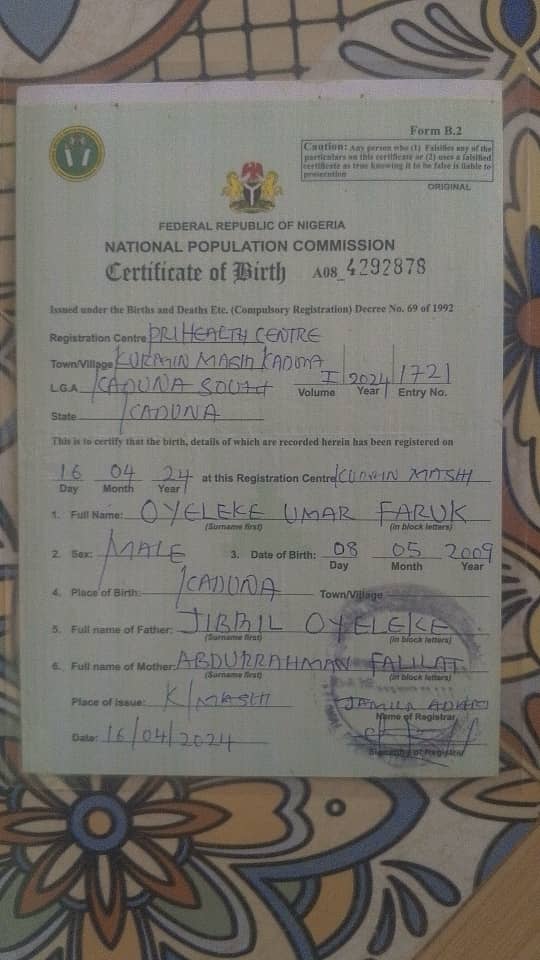 Form B.2
Caution: Any person who (1) Falsifies any of the
particulars on this certificate or (2) uses a falsified
certificate as true knowing it to be false is liable to
prosecution
ORIGINAL
FEDERAL REPUBLIC OF NIGERIA
NATIONAL POPULATION COMMISSION
Certificate of Birth A08_4292878
Issued under the Births and Deaths Etc. (Compulsory Registration) Decree No. 69 of 1992
Registration Centre PRI HEALTH CENTRE
Town/Village KURMIN MASHI KADUNA
L.G.A. KADUNA SOUTH I 2024 1721
Volume Year Entry No.
State KADUNA
This is to certify that the birth, details of which are recorded herein has been registered on
16 04 24 at this Registration Centre KURMIN MASHI
Day Month Year
1. Full Name: OYELEKE UMAR FARUK
(Surname first) (in block letters)
2. Sex: MALE 3. Date of Birth: 08 05 2009
Day Month Year
4. Place of Birth: KADUNA Town/Village
5. Full name of Father: JIBRIL OYELEKE
(Surname first) (in block letters)
6. Full name of Mother: ABDURRAHMAN FALILAT
(Surname first) (in block letters)
Place of issue: K/MASHI JAMILA
Name of Registrar
Date: 16/04/2024
Signature of Registrar